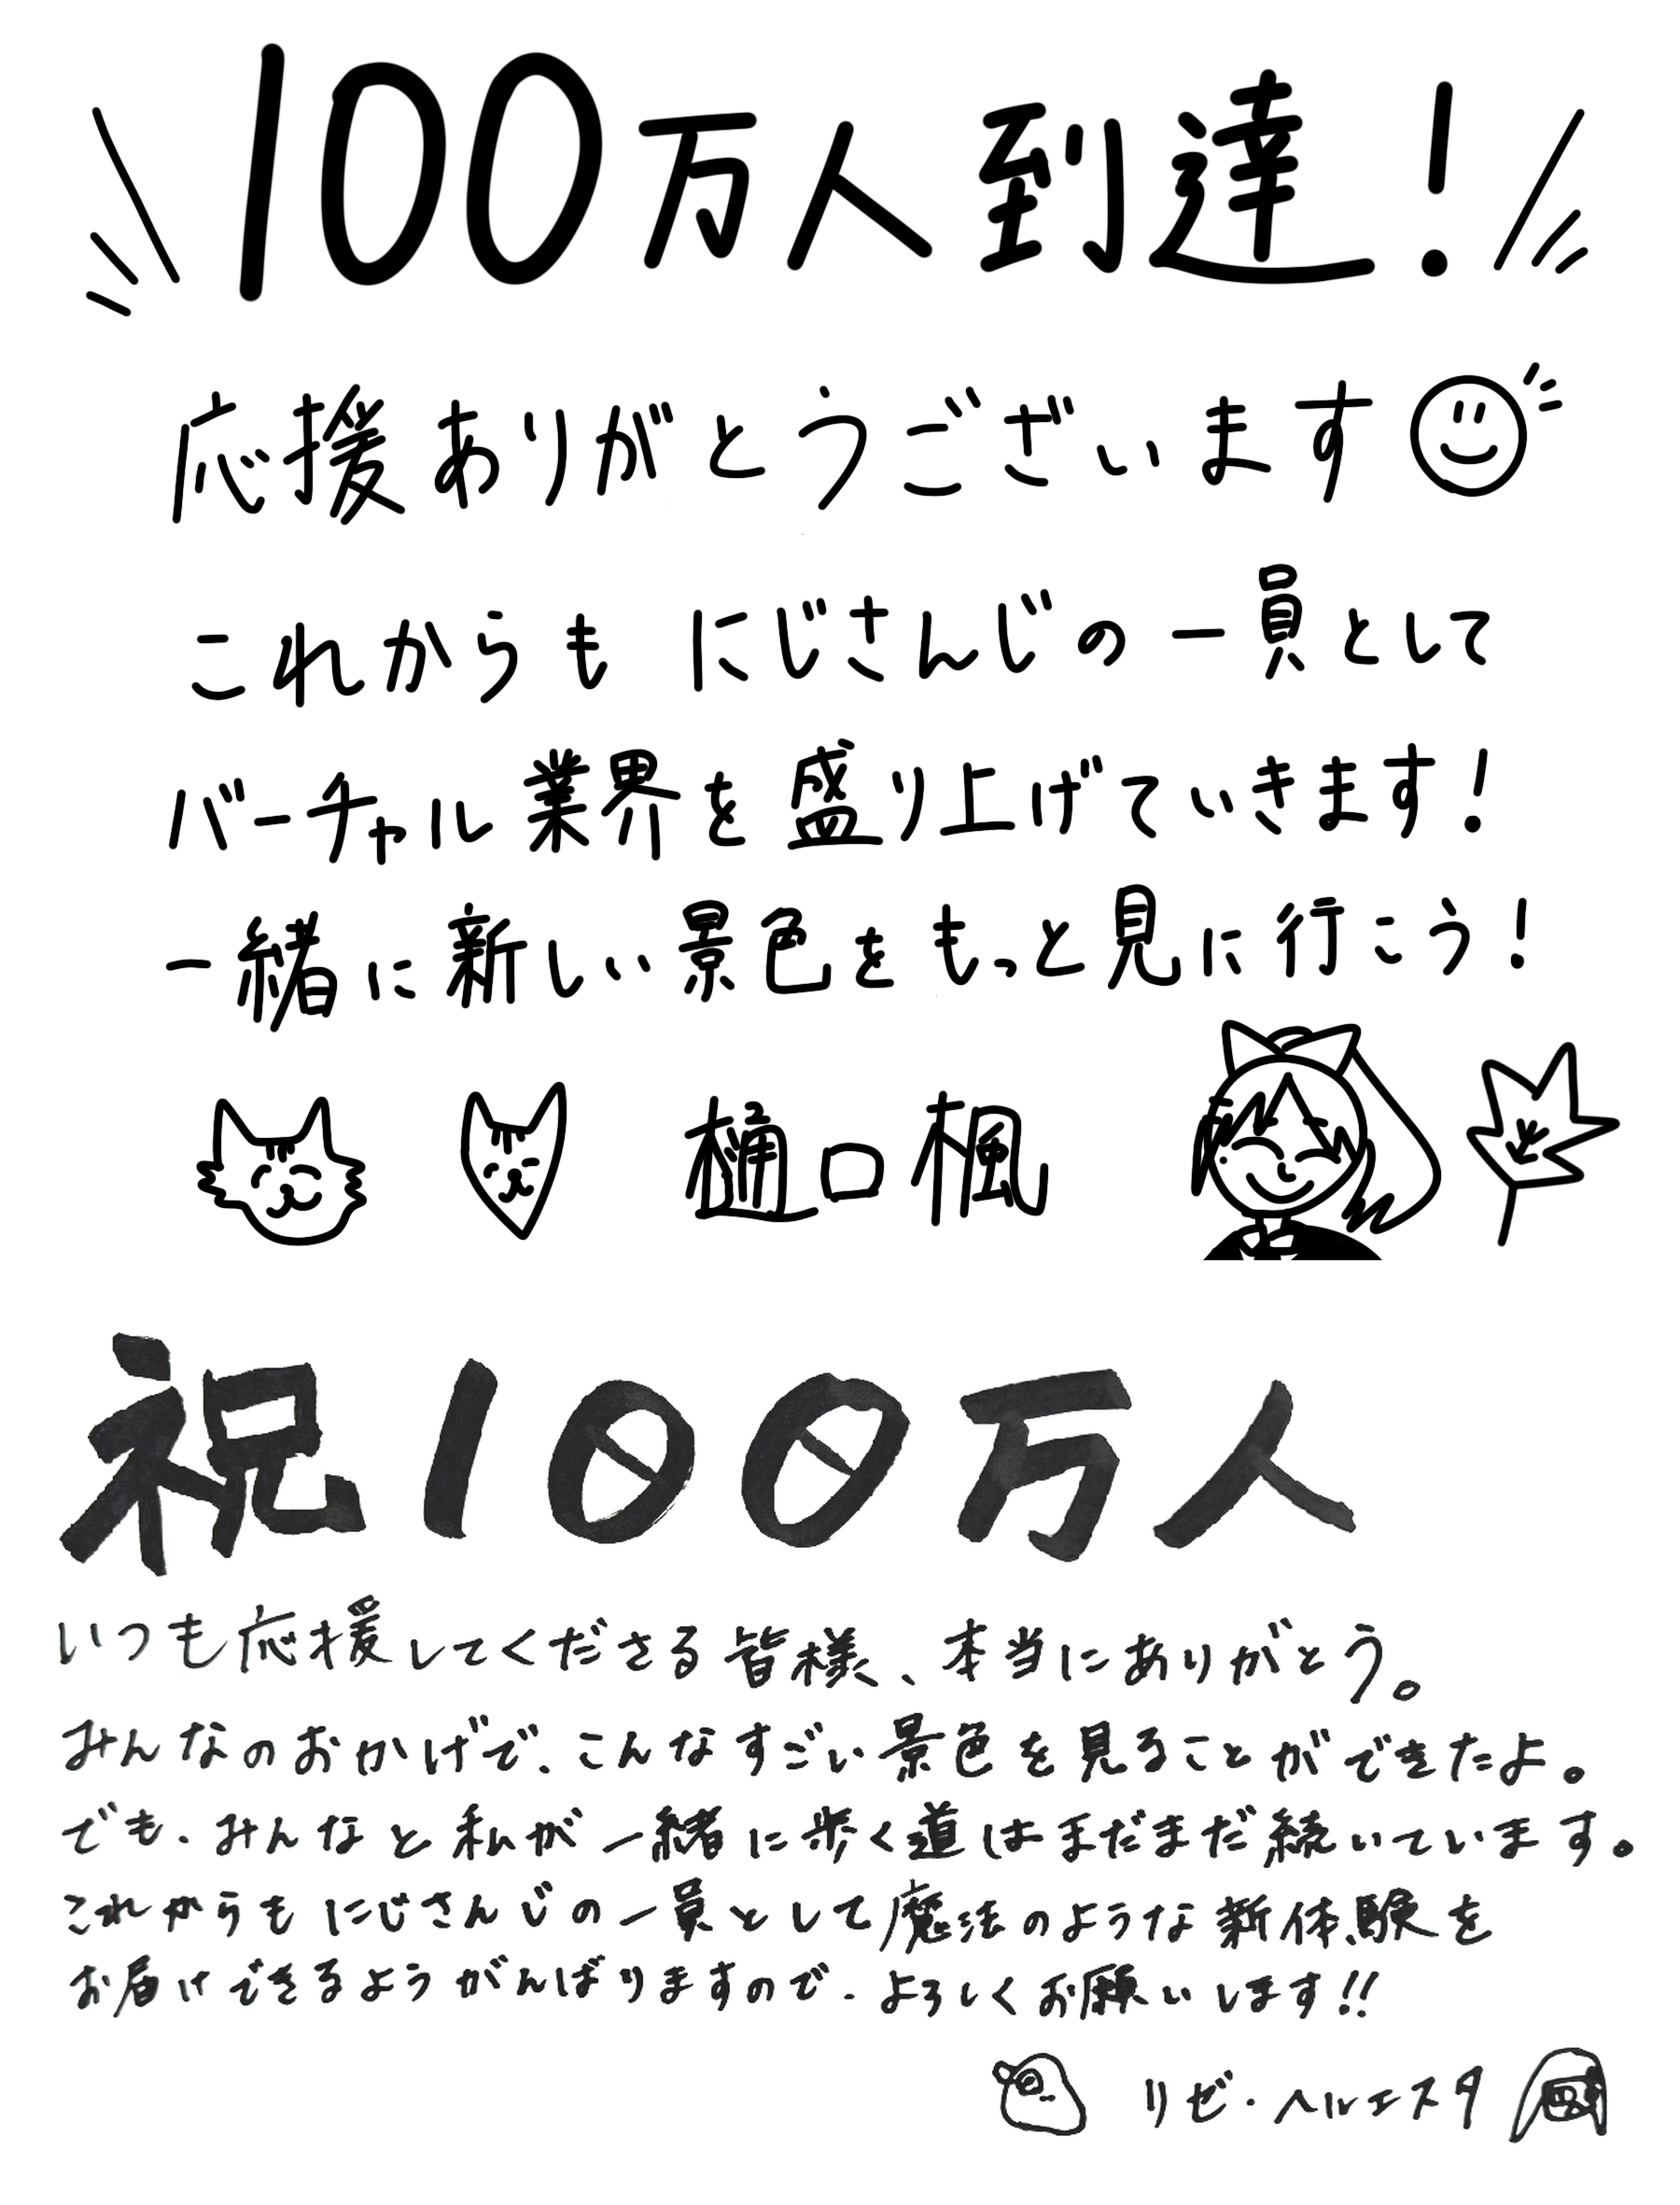 100万人到達！
応援ありがとうございます
これからも にじさんじの一員として
バーチャル業界を盛り上げていきます！
一緒に新しい景色をもっと見に行こう！
樋口楓
祝100万人
いつも応援してくださる皆様、本当にありがとう。
みんなのおかげで、こんなすごい景色を見ることができたよ。
でも、みんなと私が一緒に歩く道はまだまだ続いています。
これからもにじさんじの一員として魔法のような新体験を
お届けできるようがんばりますので、よろしくお願いします!!
リゼ・ヘルエスタ